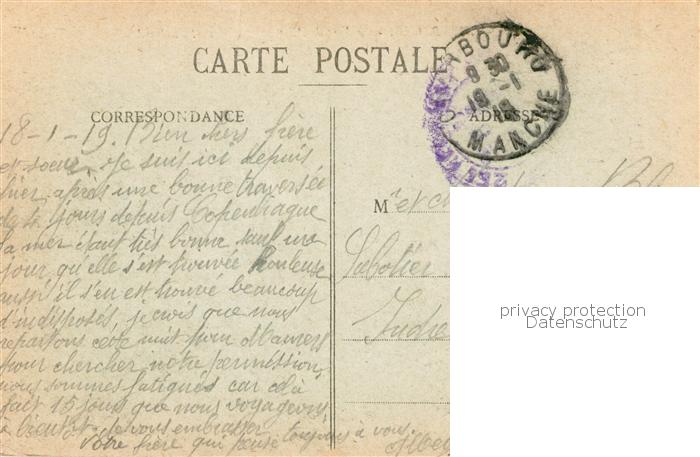 CARTE POSTALE
CORRESPONDANCE
ADRESSE
MANCHE
18-1-19. Bien chers frère
et soeur, Je suis ici depuis
hier, après une bonne traversée
de 4 jours depuis Copenhague
la mer étant très bonne sauf un
jour qu'elle s'est trouvée houleuse
aussi il s'en est trouvé beaucoup
d'indisposés, je crois que nous
repartons cette nuit pour Mamers
pour chercher notre permission,
nous sommes fatigués car celà
fait 15 jours que nous voyageons
à bientôt. Je vous embrasse
Votre frère qui pense toujours à vous.
Mr et
Sabotier
Indre
privacy protection
Datenschutz